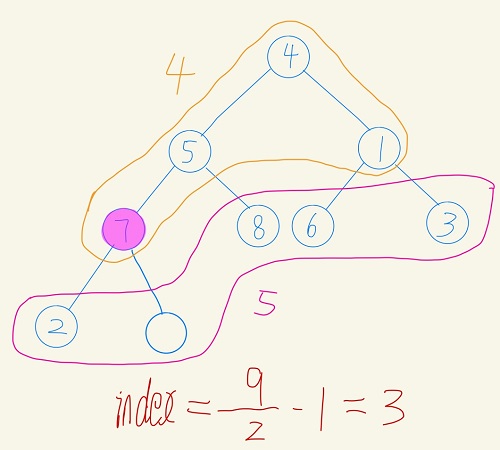 4
4
5
1
7
8
6
3
2
5
index = 9/2 - 1 = 3